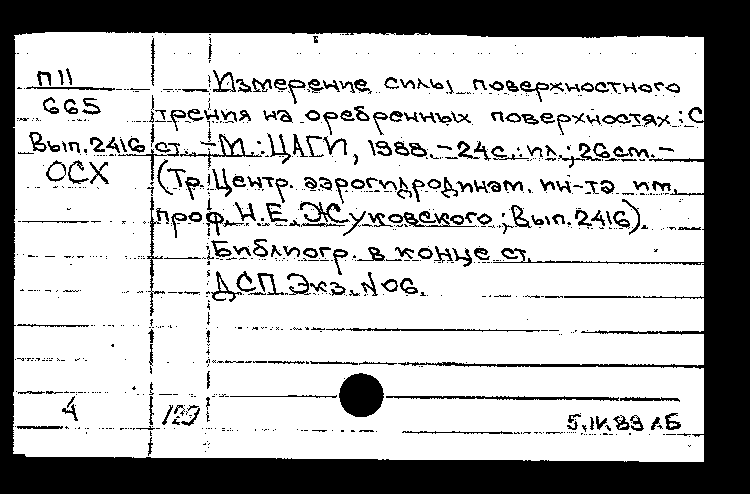 П11
665
Вып.2416
ОСХ
Измерение силы поверхностного
трения на оребренных поверхностях: С
ст. -М.: ЦАГИ, 1988. -24с.: ил.; 26см. -
(Тр. Центр. аэрогидродинам. ин-та им.
проф. Н.Е. Жуковского; Вып. 2416).
Библиогр. в конце ст.
ДСП Экз. N 06.
4
5.IV.89 ЛБ